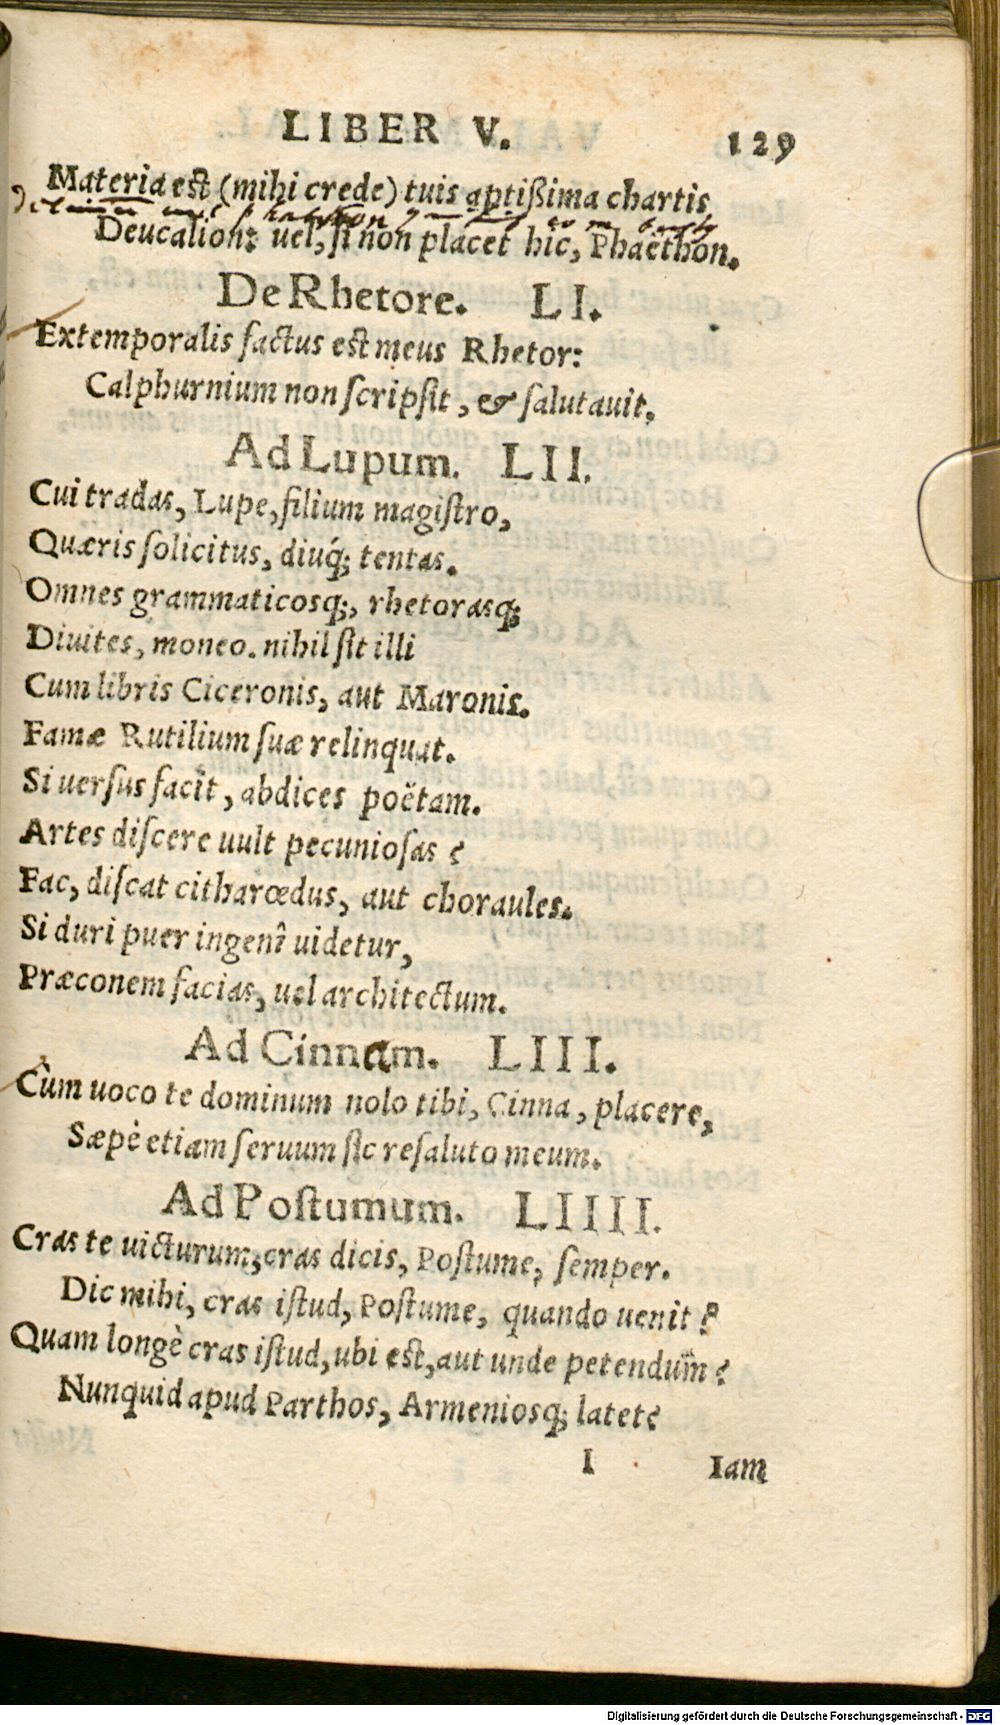 LIBER V. 129
Materia est (mihi crede) tuis aptißima chartis
Deucalion: uel, si non placet hic, Phaëthon.
De Rhetore. LI.
Extemporalis factus est meus Rhetor:
Calphurnium non scripsit, & salutauit.
Ad Lupum. LII.
Cui tradas, Lupe, filium magistro,
Quæris solicitus, diuq́; tentas.
Omnes grammaticosq;, rhetorasq;
Diuites, moneo. nihil sit illi
Cum libris Ciceronis, aut Maronis.
Famæ Rutilium suæ relinquat.
Si uersus facit, abdices poëtam.
Artes discere uult pecuniosas?
Fac, discat citharœdus, aut choraules.
Si duri puer ingenî uidetur,
Præconem facias, uel architectum.
Ad Cinnam. LIII.
Cùm uoco te dominum nolo tibi, Cinna, placere,
Sæpè etiam seruum sic resaluto meum.
Ad Postumum. LIIII.
Cras te uicturum, cras dicis, Postume, semper.
Dic mihi, cras istud, Postume, quando uenit?
Quam longè cras istud, ubi est, aut unde petendum?
Nunquid apud Parthos, Armeniosq; latet?
I Iam
Digitalisierung gefördert durch die Deutsche Forschungsgemeinschaft - DFG